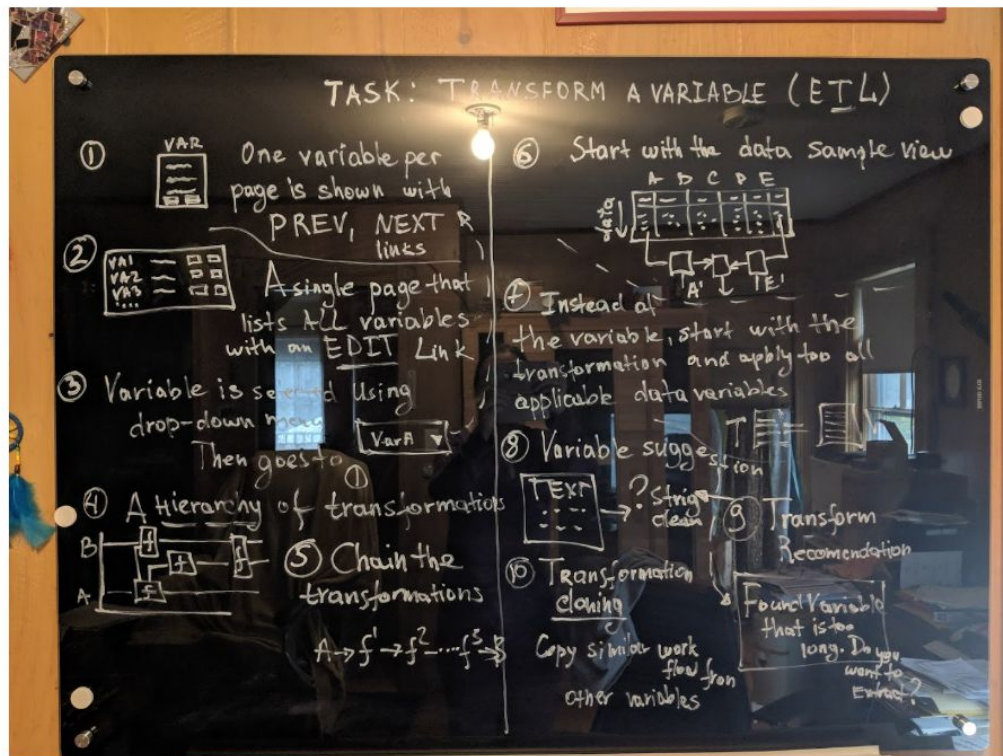 TASK: TRANSFORM A VARIABLE (ETL)
①
VAR
One variable per
page is shown with
PREV, NEXT
links
②
VA1
VA2
VA3
....
A single page that
lists ALL variables
with an EDIT Link
③ Variable is selected using
drop-down menu
VarA ▼
Then goes to ①
④ A Hierarchy of transformations
B
A
f
f
f
f
⑤ Chain the
transformations
A → f¹ → f² --... f⁵ → B
⑥ Start with the data sample view
A B C D E
A' E'
⑦ Instead of
the variable, start with the
transformation and apply too all
applicable data variables
T
⑧ Variable suggestion
TEXT
? Strig
clean
⑨ Transform
Recomendation
Found Variable
that is too
long. Do you
want to
Extract?
⑩ Transformation
cloning
Copy similar work
flow from
other variables